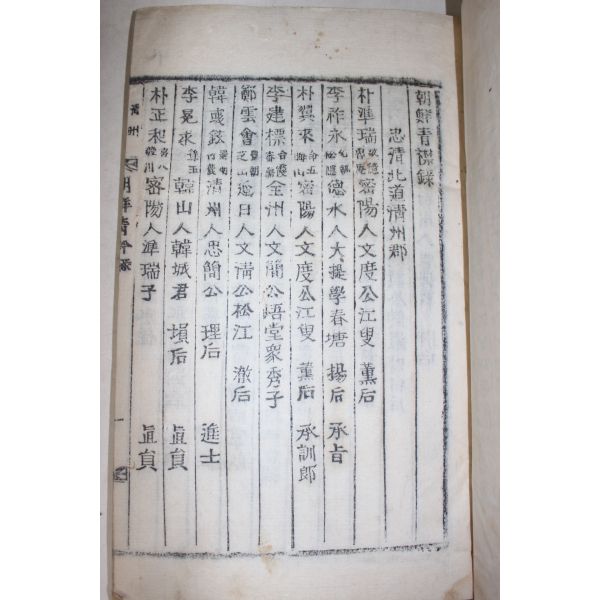 朝鮮青襟錄
忠清北道清州郡
朴準瑞 密陽人文度公江叟 薰后
李祚永 德水人大提學春塘 揚后 承旨
朴翼來 密陽人文度公江叟 薰后 承訓郎
李建標 全州人文簡公晤堂象秀子
鄭雲會 迎日人文清公松江 澈后
韓 教 清州人思簡公 理后 進士
李冕求 韓山人韓城君 塤后 真負
朴正和 密陽人準瑞子 真負
清州
朝鮮青衿錄
一